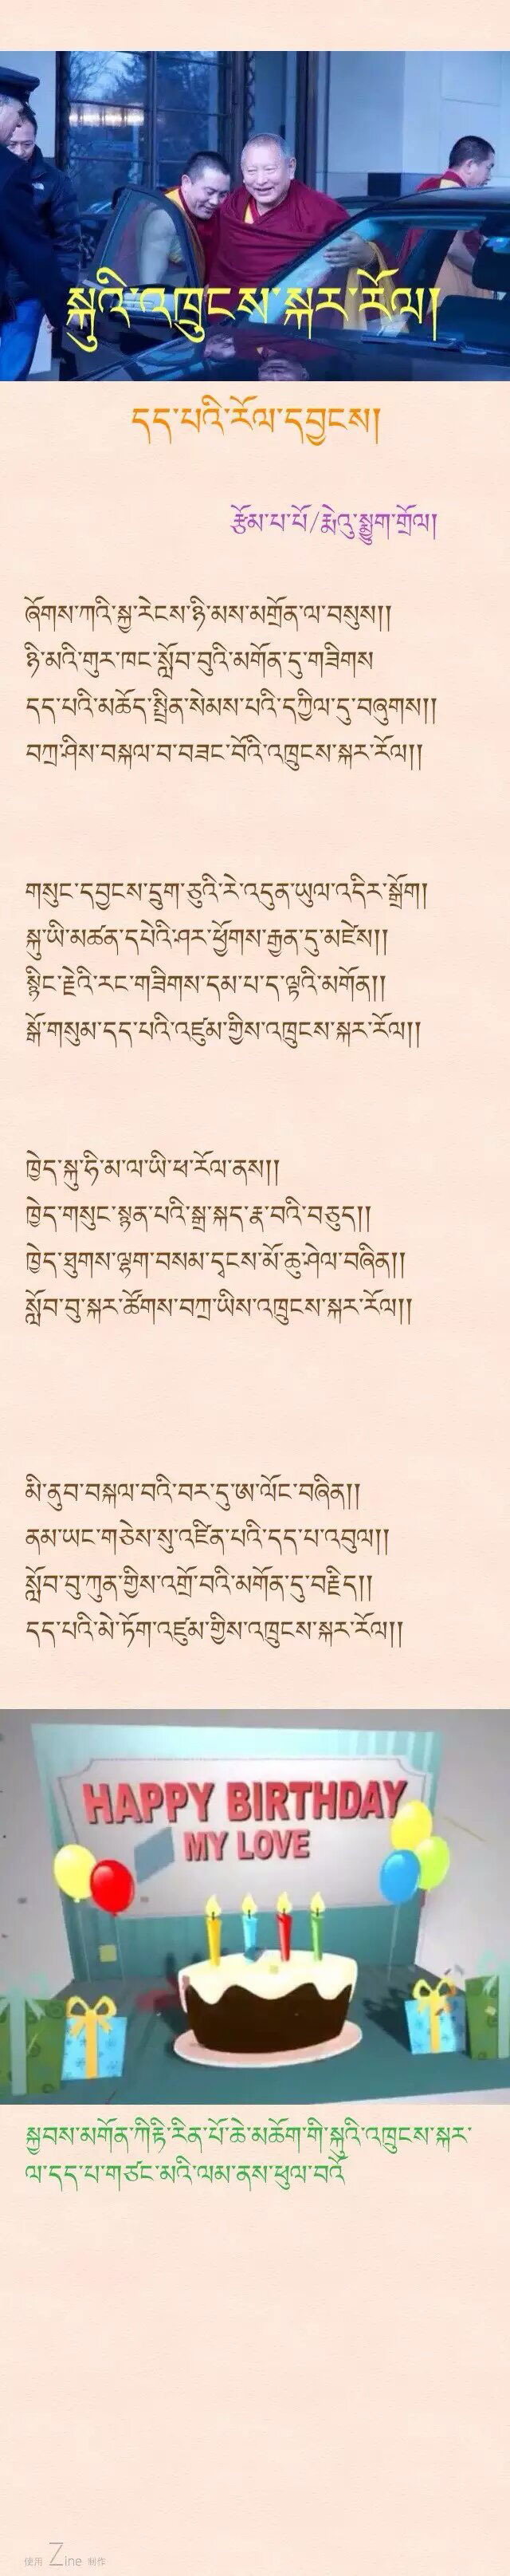 སྐུའི་འཁྲུངས་སྐར་རོལ།
དད་པའི་རོལ་དབྱངས།
རྩོམ་པ་པོ/རྨེའུ་སྨྱུག་གྲོལ།
ཞོགས་ཀའི་སྐྱ་རེངས་ཉི་མས་མགྲོན་ལ་བསུས།།
ཉི་མའི་གུར་ཁང་སློབ་བུའི་མགོན་དུ་གཟིགས
དད་པའི་མཆོད་སྤྲིན་སེམས་པའི་དཀྱིལ་དུ་བཞུགས།།
བཀྲ་ཤིས་བསྐལ་བ་བཟང་བོའི་འཁྲུངས་སྐར་རོལ།།
གསུང་དབྱངས་དྲུག་ཅུའི་རེ་འདུན་ཡུལ་འདིར་སྒྲོག།
སྐུ་ཡི་མཚན་དཔེའི་ཤར་ཕྱོགས་རྒྱན་དུ་མཛེས།།
སྙིང་རྗེའི་རང་གཟིགས་དམ་པ་ད་ལྟའི་མགོན།།
སྒོ་གསུམ་དད་པའི་འཛུམ་གྱིས་འཁྲུངས་སྐར་རོལ།།
ཁྱེད་སྐུ་ཧི་མ་ལ་ཡི་ཕ་རོལ་ནས།།
ཁྱེད་གསུང་སྙན་པའི་སྒྲ་སྐད་རྣ་བའི་བཅུད།།
ཁྱེད་ཐུགས་ལྷག་བསམ་དྭངས་མོ་ཆུ་ཤེལ་བཞིན།།
སློབ་བུ་སྐར་ཚོགས་བཀྲ་ཡིས་འཁྲུངས་སྐར་རོལ།།
མི་ནུབ་བསྐལ་བའི་བར་དུ་ཨ་ལོང་བཞིན།།
ནམ་ཡང་གཅེས་སུ་འཛིན་པའི་དད་པ་འབུལ།།
སློབ་བུ་ཀུན་གྱིས་འགྲོ་བའི་མགོན་དུ་བརྗིད།།
དད་པའི་མེ་ཏོག་འཛུམ་གྱིས་འཁྲུངས་སྐར་རོལ།།
HAPPY BIRTHDAY
MY LOVE
སྐྱབས་མགོན་ཀིརྟི་རིན་པོ་ཆེ་མཆོག་གི་སྐུའི་འཁྲུངས་སྐར་
ལ་དད་པ་གཙང་མའི་ལམ་ནས་ཕུལ་བའོ
使用 Zine 制作